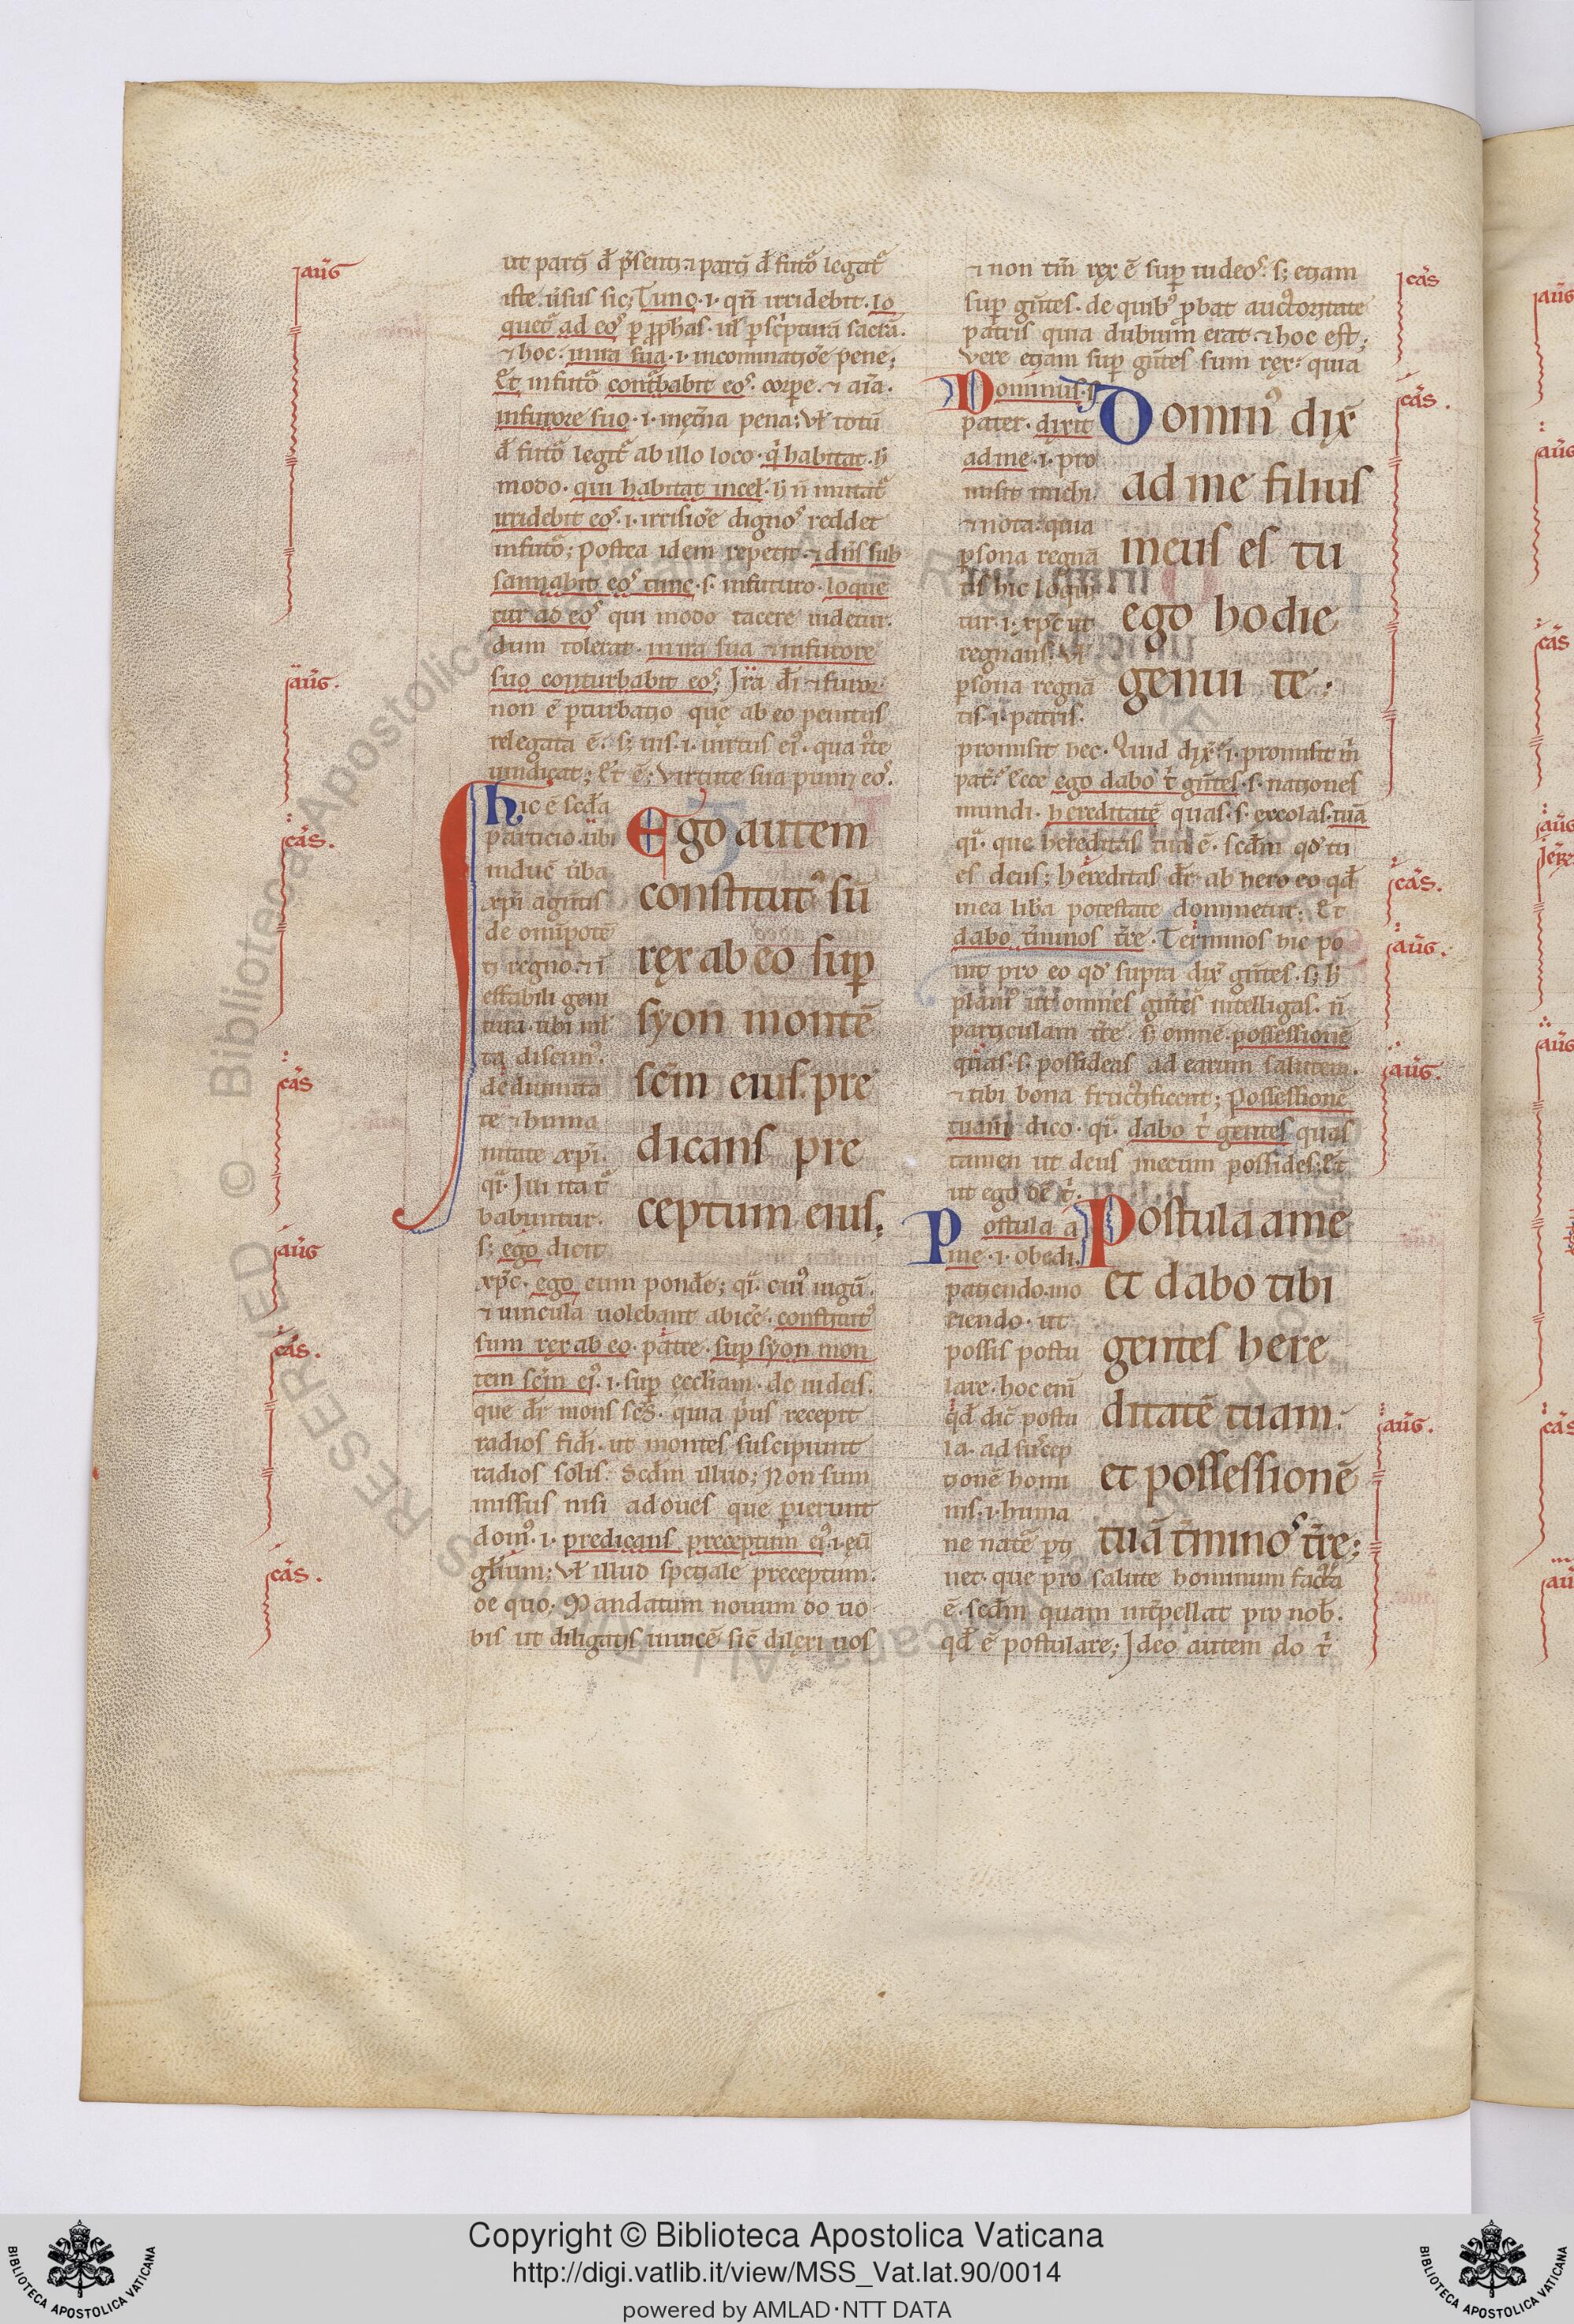 aug̃
ut partī d̄ p̃senti ⁊ partī d̄ futo legat̃
iste ũsus sic; Tunc .i. qñ irridebit. lo
quet̃ ad eos p̱ ꝓphas. ul p̱ sc̃pturã sacrã.
⁊ hoc. in ira sua .i. in cominatiõe pene;
Et in futo contbabit eos. corpe. ⁊ aĩa.
in furore suo .i. in et̃na pena; Vl̃ totũ
d̄ futo legit̃ ab illo loco. q̃ habitat. h̃
modo. qui habitat in cel. h̃ ñ mutat̃
irridebit eos .i. irrisiõe dignos reddet
in futo; Postea idem repetit. ⁊ dñs sub
sannabit eos tunc .s. in futuro. loque
tur ad eos qui modo tacere uidetur.
dum tolerat. in ira sua ⁊ in furore
suo conturbabit eos; Ira dĩ ⁊ furor
non ẽ p̱turbatio que ab eo penitus
relegata ẽ. s; uis .i. uirtus ei9. qua iste
uindicat; Et ẽ; Virtute sua puniet eos.
aug̃.
cas̃.
hic ẽ scd̃a
particio. ubi
induc̃ ũba
xp̃i agẽtis
de omipotẽ
ti regno. ⁊ ĩ
effabili geni
tura. ubi ml̃
ta discim9.
de diuinita
te ⁊ huma
nitate xp̃i.
q̃. Illi ita t̃
babuntur.
s; ego dicit
Ego autem
constitut9 sũ
rex ab eo sup̱
syon montẽ
sc̃m eius. pre
dicans pre
ceptum eius;
cas̃
aug̃
xp̃c. ego eum pond̃e; q̃. cui9 iugũ.
⁊ uincula uolebant abice. constitut9
sum rex ab eo. patre. sup̱ syon mon
tem sc̃m ei9 .i. sup̱ eccl̃iam. de iudeis.
que d̃r mons sc̃s. quia p̃us recepit
radios fidei. ut montes suscipiunt
radios solis. Scd̃m illud; Non sum
missus nisi ad oues que p̱ierunt
dom9 .i. predicans preceptum ei9 .i. eũ
gl̃ium; Vl̃ illud spetiale preceptum.
de quo. Mandatum nouum do uo
bis ut diligatis inuicẽ sic̃ dilexi uos
cas̃.
cas̃.
⁊ non tm̃ rex ẽ sup̱ iudeos. s; etiam
sup̱ gẽtes. de quib9 p̱bat auctoritate
patris quia dubium erat. ⁊ hoc est;
vere etiam sup̱ gẽtes sum rex. quia
cas̃
Dominus .s.
pater. dixit
ad me .i. pro
misit michi.
⁊ nota. quia
p̱sona regnã
tis hic loqui
tur .i. xp̃c ut
regnans. Vl̃
p̱sona regnã
tis .i. patris.
Domin9 dix̃
ad me filius
meus es tu
ego hodie
genui te;
cas̃.
promisit hec. Quid dix̃. i. promisit m̃
pat̃. Ecce ego dabo t̃ gẽtes .s. nationes
mundi. hereditatẽ quas .s. excolas. tuã
q̃. que hereditas tua ẽ. scd̃m qd̃ tu
es deus; hereditas d̃r ab hero eo qd̃
mea lib̃a potestate dominetur; Et
dabo t̃minos t̃re. Terminos hic po
nit pro eo qd̃ supra dix̃ gẽtes. s; h̃
plani9 ut omnes gẽtes intelligas. ñ
particulam t̃re s; omnẽ possessionẽ
quas .s. possideas ad earum salutem.
⁊ tibi bona fructificent; Possessionẽ
tuam dico. q̃. dabo t̃ gentes quas
tamen ut deus mecum possides; Et
ut ego dẽ t̃.
cas̃.
aug̃.
aug̃.
Postula a
me .i. obedi.
patiendo. mo
riendo. ut
possis postu
lare. hoc enĩ
qd̃ dic̃ postu
la. ad suscep
tionẽ homi
nis .i. huma
ne natẽ p̱ti
Postula a me
et dabo tibi
gentes here
ditatẽ tuam.
et possessionẽ
tuã t̃minos t̃re;
net. que pro salute hominum facta
ẽ. scd̃m quam int̃pellat pro nob̃.
qd̃ ẽ postulare; Ideo autem do t̃
aug̃.
Copyright © Biblioteca Apostolica Vaticana
http://digi.vatlib.it/view/MSS_Vat.lat.90/0014
powered by AMLAD·NTT DATA
BIBLIOTECA APOSTOLICA VATICANA
BIBLIOTECA APOSTOLICA VATICANA